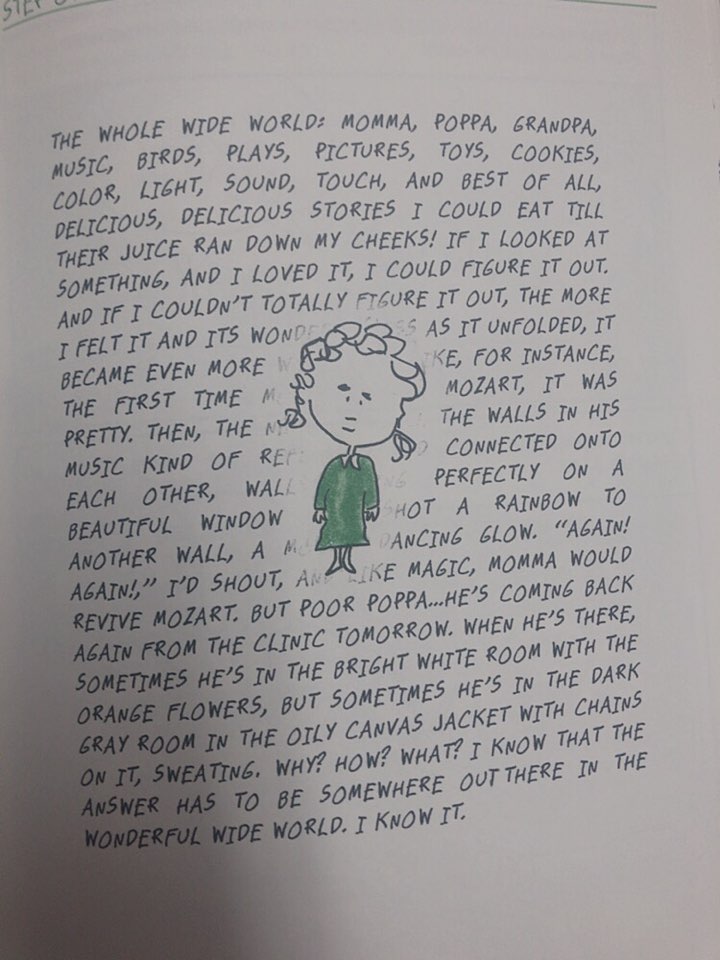 STEP
THE WHOLE WIDE WORLD: MOMMA, POPPA, GRANDPA,
MUSIC, BIRDS, PLAYS, PICTURES, TOYS, COOKIES,
COLOR, LIGHT, SOUND, TOUCH, AND BEST OF ALL,
DELICIOUS, DELICIOUS STORIES I COULD EAT TILL
THEIR JUICE RAN DOWN MY CHEEKS! IF I LOOKED AT
SOMETHING, AND I LOVED IT, I COULD FIGURE IT OUT.
AND IF I COULDN'T TOTALLY FIGURE IT OUT, THE MORE
I FELT IT AND ITS AS IT UNFOLDED, IT
BECAME EVEN MORE FOR INSTANCE,
THE FIRST TIME MOZART, IT WAS
PRETTY. THEN, THE THE WALLS IN HIS
MUSIC KIND OF CONNECTED ONTO
EACH OTHER, PERFECTLY ON A
BEAUTIFUL WINDOW SHOT A RAINBOW TO
ANOTHER WALL, A DANCING GLOW. "AGAIN!
AGAIN!," I'D SHOUT, AND LIKE MAGIC, MOMMA WOULD
REVIVE MOZART. BUT POOR POPPA...HE'S COMING BACK
AGAIN FROM THE CLINIC TOMORROW. WHEN HE'S THERE,
SOMETIMES HE'S IN THE BRIGHT WHITE ROOM WITH THE
ORANGE FLOWERS, BUT SOMETIMES HE'S IN THE DARK
GRAY ROOM IN THE OILY CANVAS JACKET WITH CHAINS
ON IT, SWEATING. WHY? HOW? WHAT? I KNOW THAT THE
ANSWER HAS TO BE SOMEWHERE OUT THERE IN THE
WONDERFUL WIDE WORLD. I KNOW IT.